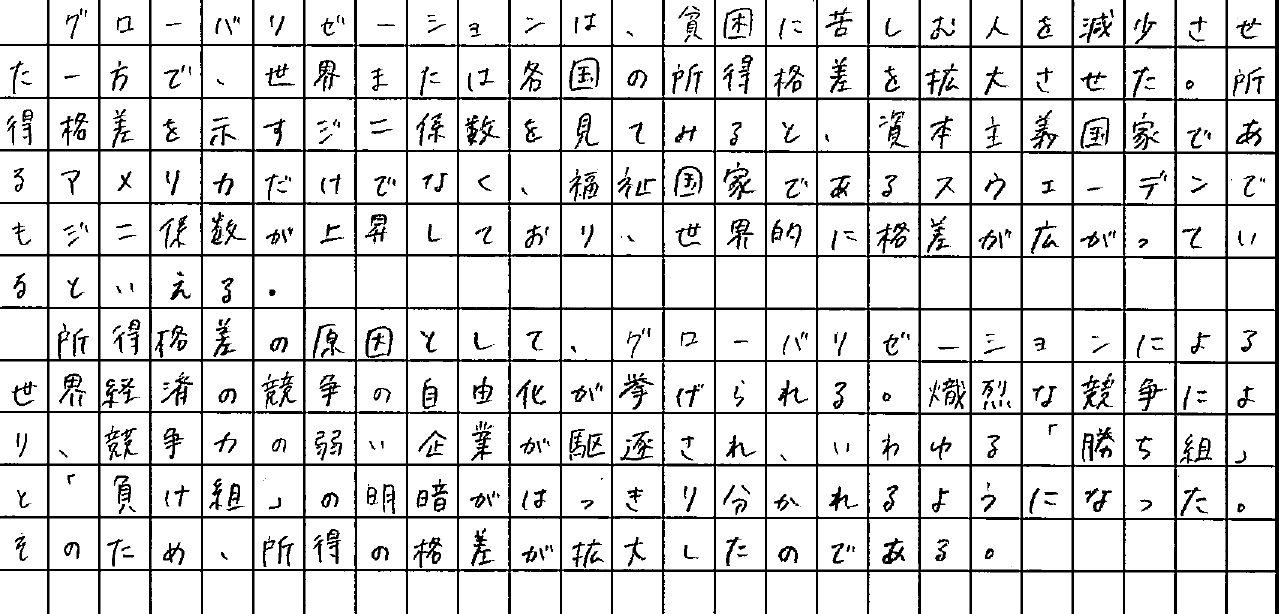 グローバリゼーションは、貧困に苦しむ人を減少させ
た一方で、世界または各国の所得格差を拡大させた。所
得格差を示すジニ係数を見てみると、資本主義国家であ
るアメリカだけでなく、福祉国家であるスウェーデンで
もジニ係数が上昇しており、世界的に格差が広がってい
るといえる。
　所得格差の原因として、グローバリゼーションによる
世界経済の競争の自由化が挙げられる。熾烈な競争によ
り、競争力の弱い企業が駆逐され、いわゆる「勝ち組」
と「負け組」の明暗がはっきり分かれるようになった。
そのため、所得の格差が拡大したのである。